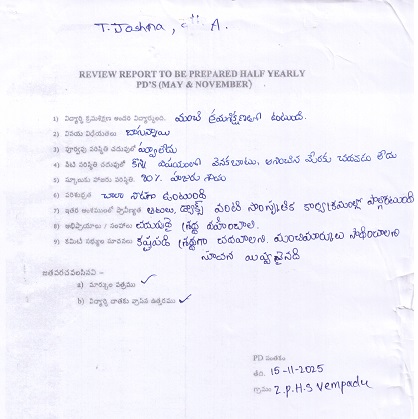 T. Joshna, A.
REVIEW REPORT TO BE PREPARED HALF YEARLY
PD'S (MAY & NOVEMBER)
1) విద్యార్థి క్రమశిక్షణ అందరి విద్యార్థులకు. మంచి క్రమశిక్షణతో ఉంటుంది.
2) వినయ విధేయతలు బాగున్నాయి
3) పూర్వపు పరిస్థితి చదువులో పర్వాలేదు
4) నేటి పరిస్థితి చదువులో కొన్ని విషయంలో వెనకబాటు, ఆశించిన మేరకు చదవడం లేదు
5) స్కూలుకు హాజరు పరిస్థితి. 80% హాజరు శాతం
6) పరిశుభ్రత చాలా నీటుగా ఉంటుంది
7) ఇతర అంశములలో ప్రావీణ్యత ఆటలు, డ్యాన్స్ వంటి సాంస్కృతిక కార్యక్రమాల్లో పాల్గొంటుంది
8) అభిప్రాయాలు / సలహాలు చదువుపై శ్రద్ధ వహించాలి
9) కమిటీ సభ్యుల సూచనలు కష్టపడి శ్రద్ధగా చదవాలని. మంచిమార్కులు సాధించాలని
సూచన ఇవ్వడమైనది
జతపరచవలసినవి -
a) మార్కుల పత్రము ✓
b) విద్యార్థి దాతకు వ్రాసిన ఉత్తరము ✓
PD సంతకం
తేది. 15-11-2025
గ్రామం Z.P.H.S Vempadu